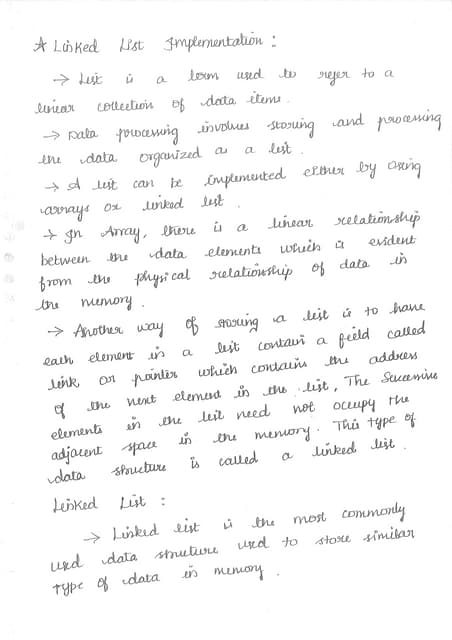 ★ Linked List Implementation :
→ List is a term used to refer to a
linear collection of data items.
→ Data processing involves storing and processing
the data organized as a list.
→ A list can be implemented either by using
arrays or linked list.
→ In Array, there is a linear relationship
between the data elements which is evident
from the physical relationship of data in
the memory.
→ Another way of storing a list is to have
each element in a list contain a field called
link or pointer which contains the address
of the next element in the list, The Successive
elements in the list need not occupy the
adjacent space in the memory. This type of
data structure is called a linked list.
Linked List :
→ Linked list is the most commonly
used data structure used to store similar
type of data in memory.